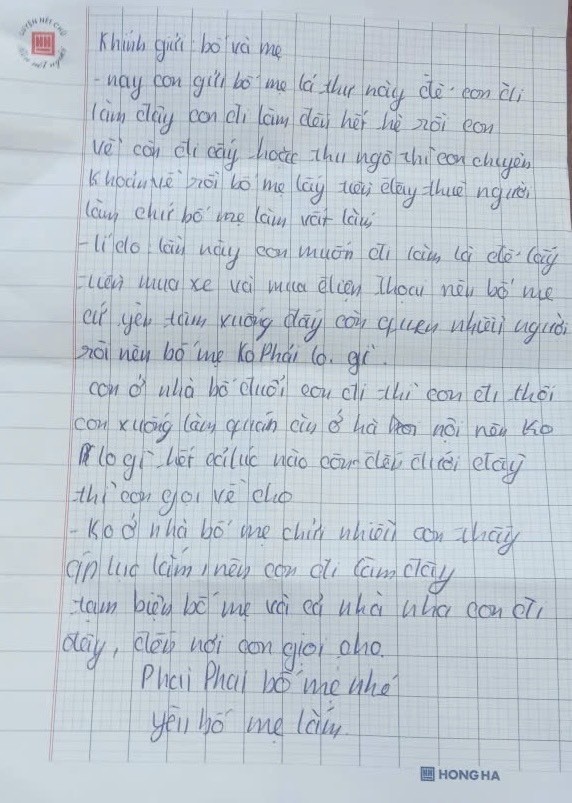 Khính gửi bố và mẹ
- nay con gửi bố mẹ lá thư này để con đi
làm đây con đi làm đến hết hè rồi con
về còn đi cấy hoặc thu ngô thì con chuyển
khoản về rồi bố mẹ lấy tiền đấy thuê người
làm chứ bố mẹ làm vất lắm
- lí do lần này con muốn đi làm là để lấy
tiền mua xe và mua điện thoại nên bố mẹ
cứ yên tâm xuống đấy còn quen nhiều người
rồi nên bố mẹ ko phải lo gì.
con ở nhà bố đuổi con đi thì con đi thôi
con xuống làm quán ở hà nội nên ko
lo gì hết lúc nào con đến dưới đấy
thì con gọi về cho
- ko ở nhà bố mẹ chửi nhiều con thấy
áp lực lắm, nên con đi làm đây
tạm biệt bố mẹ và cả nhà nha con đi
đây, đến nơi con gọi cho.
Phai Phai bố mẹ nhé
yêu bố mẹ lắm.
HONG HA